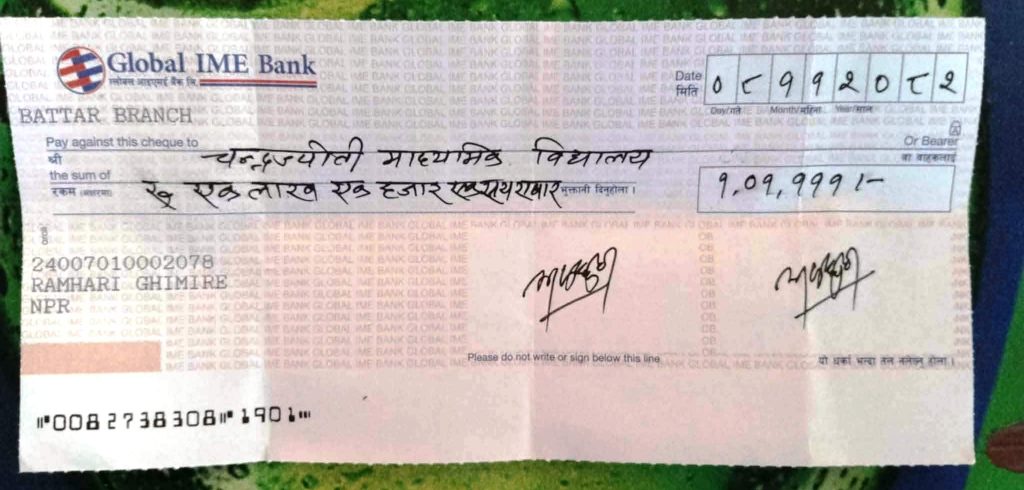 Global IME Bank
ग्लोबल आइएमई बैंक लि.
BATTAR BRANCH
Date मिति ०८ ११ २०८२
Day/गते Month/महिना Year/साल
Pay against this cheque to
श्री चन्द्रज्योती माध्यमिक विद्यालय
Or Bearer
वा वाहकलाई
the sum of
रकम (अक्षरमा) रू एक लाख एक हजार एक सय एघार भुक्तानी दिनुहोला ।
१,०१,१११।-
24007010002078
RAMHARI GHIMIRE
NPR
Please do not write or sign below this line
यो धर्का भन्दा तल नलेख्नु होला ।
⑈0082738308⑈1901⑈